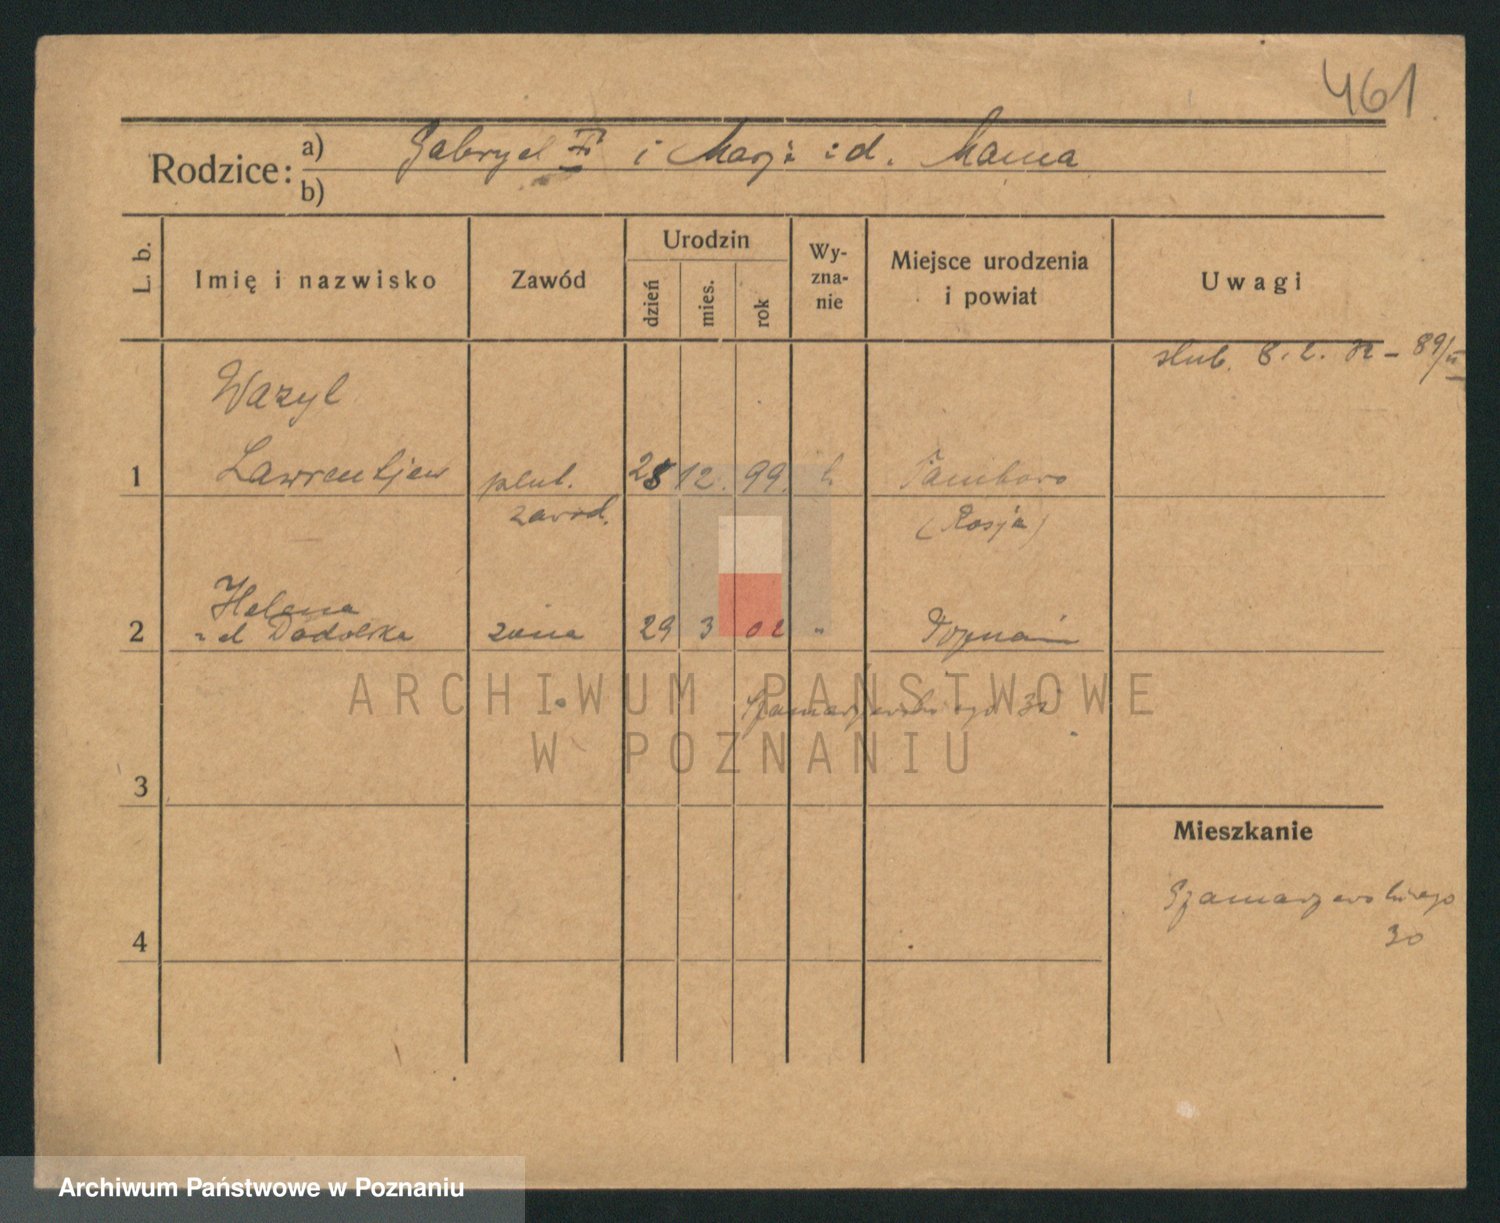 461
Rodzice: a) Gabryel i Marja zd. Manna
b)
L. b.
Imię i nazwisko
Zawód
Urodzin
dzień
mies.
rok
Wy-
zna-
nie
Miejsce urodzenia
i powiat
Uwagi
ślub. 8. 2. 32 – 89/II
Wazyl
1 Lawrentjew plut. 28 12. 99. Tamboro
zawod. (Rosja)
Helena
2 zd Dodolska żona 29 3 02 " Poznań
Szamarzewskiego
3
Mieszkanie
Szamarzewskiego
30
4
ARCHIWUM PAŃSTWOWE
W POZNANIU
Archiwum Państwowe w Poznaniu